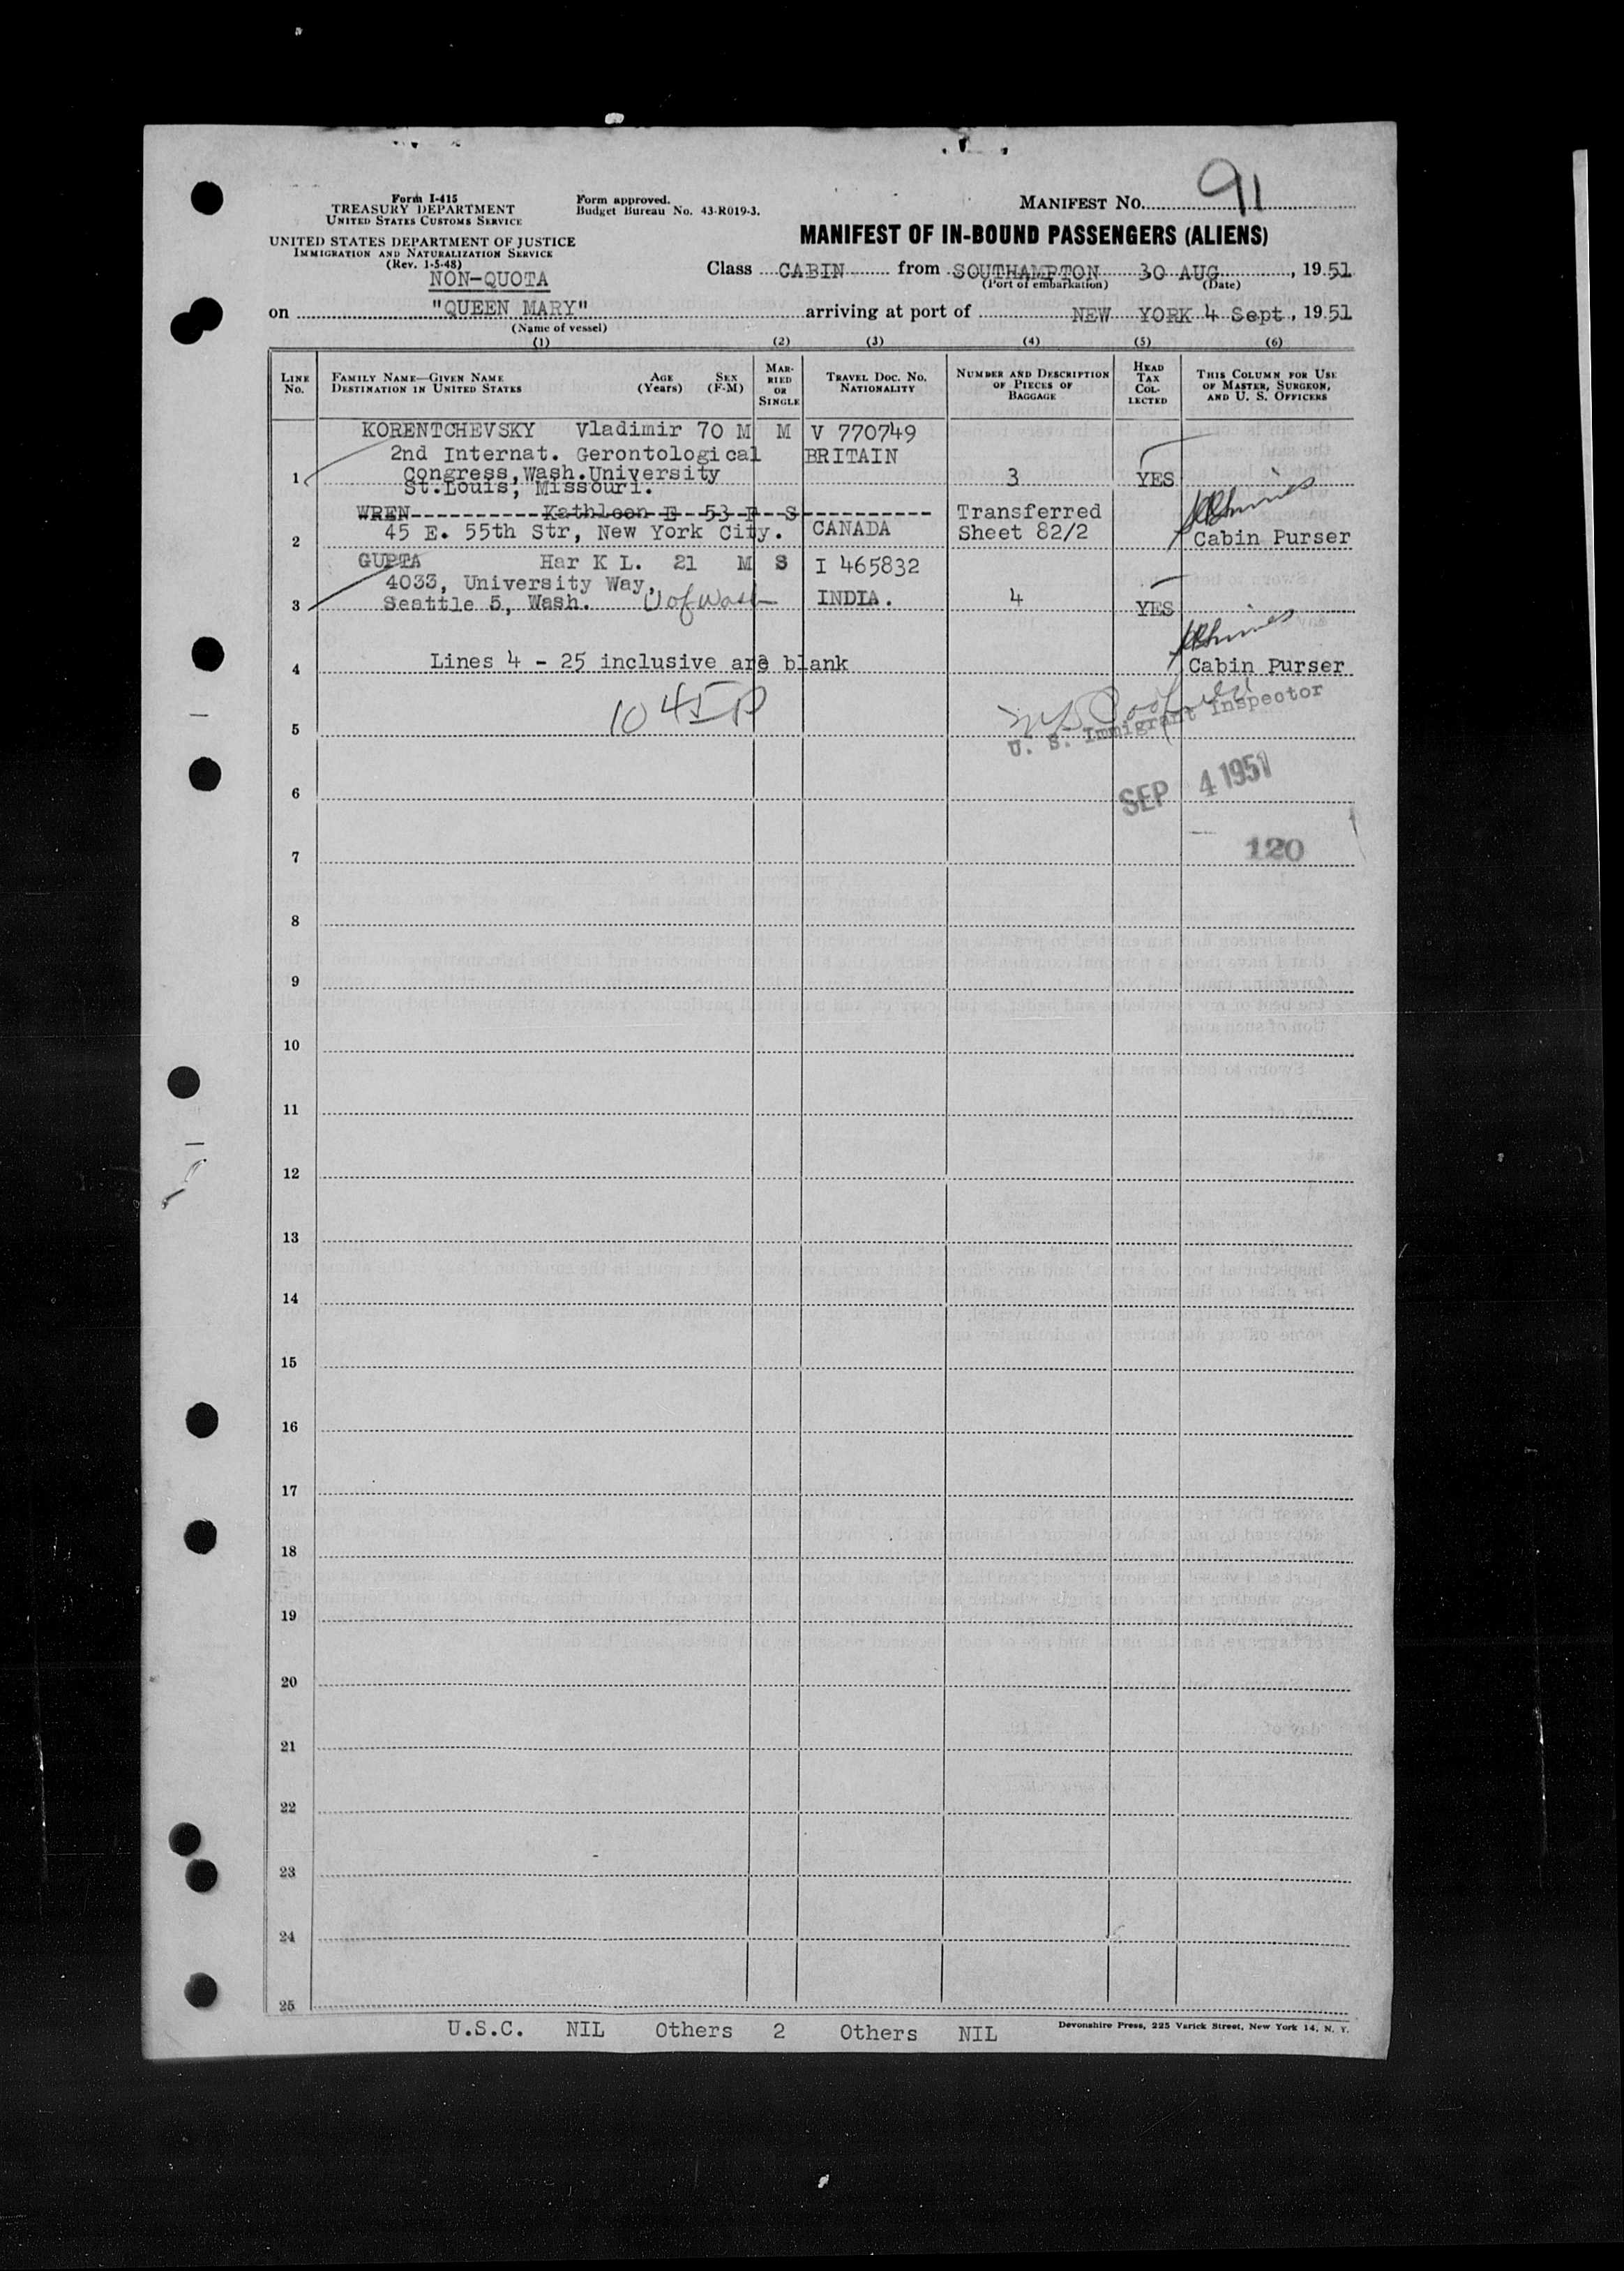 Form I-415
TREASURY DEPARTMENT
UNITED STATES CUSTOMS SERVICE
Form approved.
Budget Bureau No. 43-R019-3.
MANIFEST NO. 91
UNITED STATES DEPARTMENT OF JUSTICE
IMMIGRATION AND NATURALIZATION SERVICE
(Rev. 1-5-48)
NON-QUOTA
MANIFEST OF IN-BOUND PASSENGERS (ALIENS)
Class CABIN from SOUTHAMPTON 30 AUG, 1951
(Port of embarkation) (Date)
on "QUEEN MARY" arriving at port of NEW YORK 4 Sept, 1951
(Name of vessel)
(1) (2) (3) (4) (5) (6)
LINE NO.
FAMILY NAME—GIVEN NAME
DESTINATION IN UNITED STATES
AGE (Years)
SEX (F-M)
MARRIED OR SINGLE
TRAVEL DOC. NO. NATIONALITY
NUMBER AND DESCRIPTION OF PIECES OF BAGGAGE
HEAD TAX COLLECTED
THIS COLUMN FOR USE OF MASTER, SURGEON, AND U. S. OFFICERS
KORENTCHEVSKY Vladimir 70 M M V 770749
2nd Internat. Gerontological BRITAIN
1 Congress, Wash. University 3 YES
St. Louis, Missouri.
WREN---------- Kathleen E 53 F S ---------- Transferred
45 E. 55th Str, New York City. CANADA Sheet 82/2
2 Cabin Purser
GUPTA Har K L. 21 M S I 465832
4033, University Way,
3 Seattle 5, Wash. U of Wash INDIA. 4 YES
4 Lines 4 - 25 inclusive are blank Cabin Purser
U. S. Immigrant Inspector
5
SEP 4 1951
6
120
7
8
9
10
11
12
13
14
15
16
17
18
19
20
21
22
23
24
25
U.S.C. NIL Others 2 Others NIL
Devonshire Press, 225 Varick Street, New York 14, N. Y.